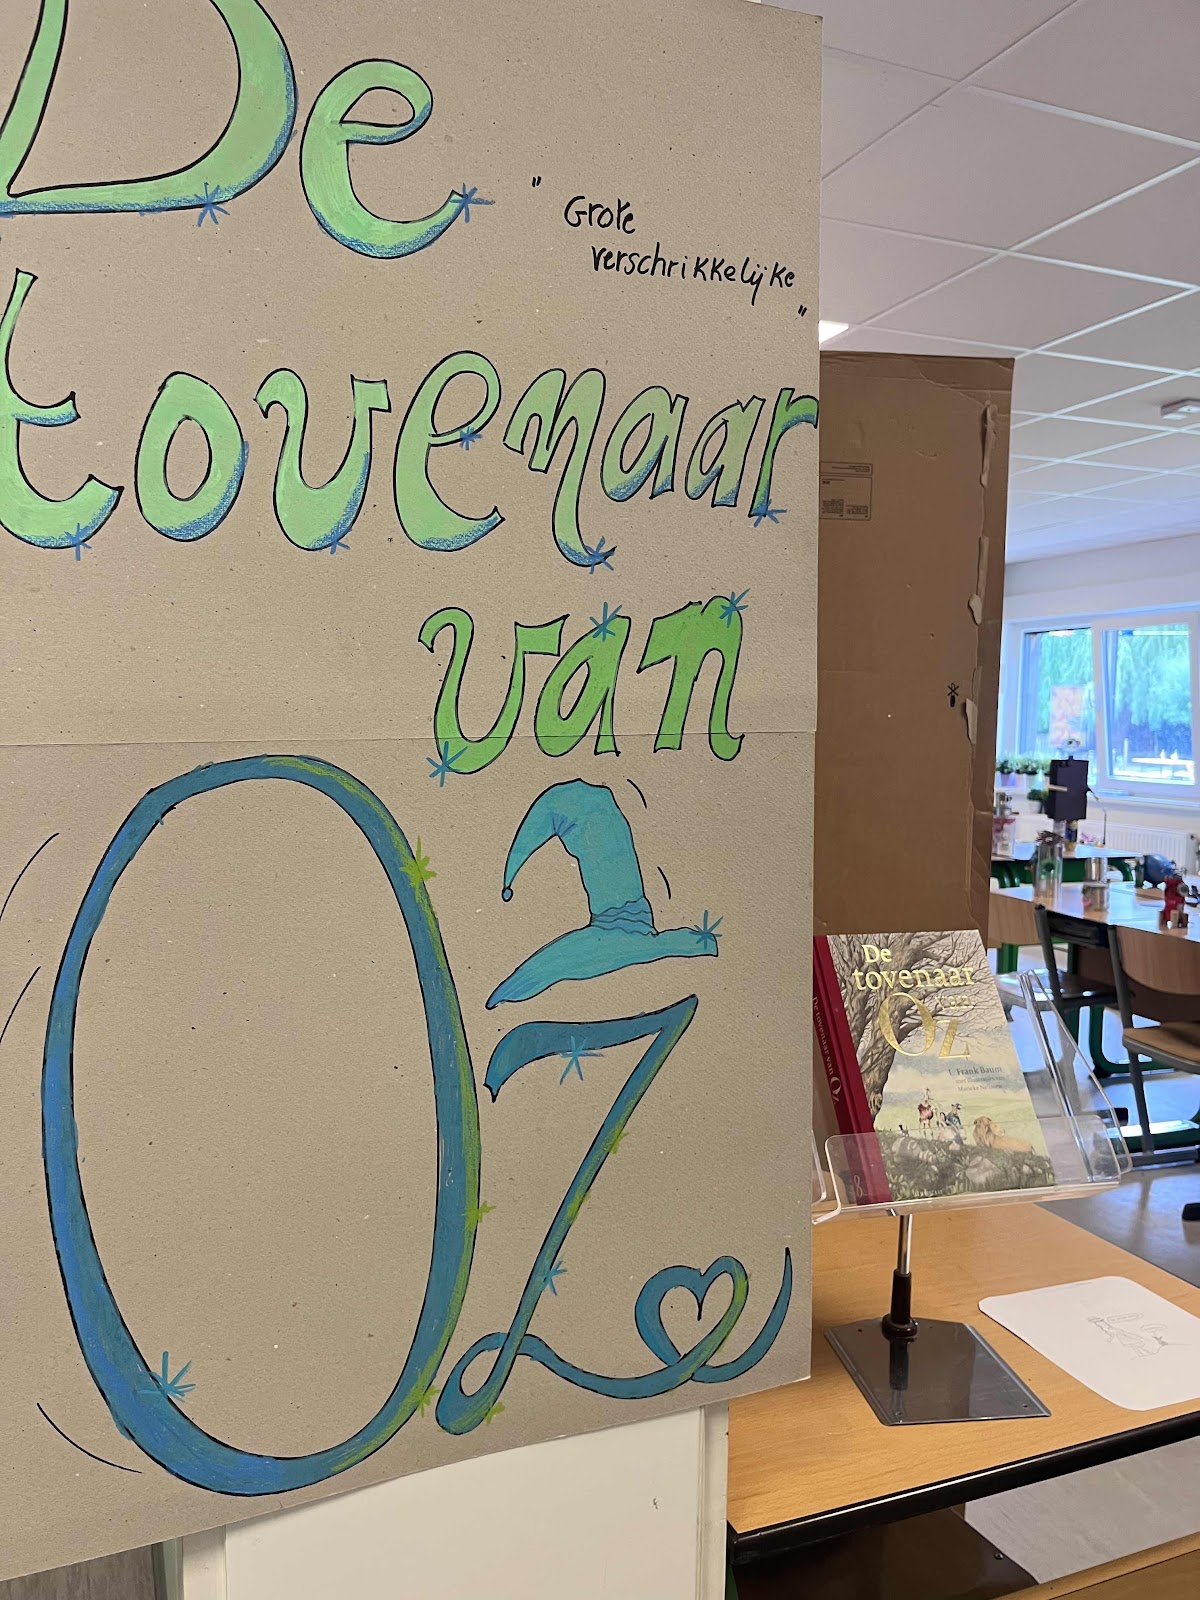 De
" Grote
verschrikkelijke
"
tovenaar
van
Oz
De
tovenaar
van
Oz
L. Frank Baum
met illustraties van
De tovenaar van Oz